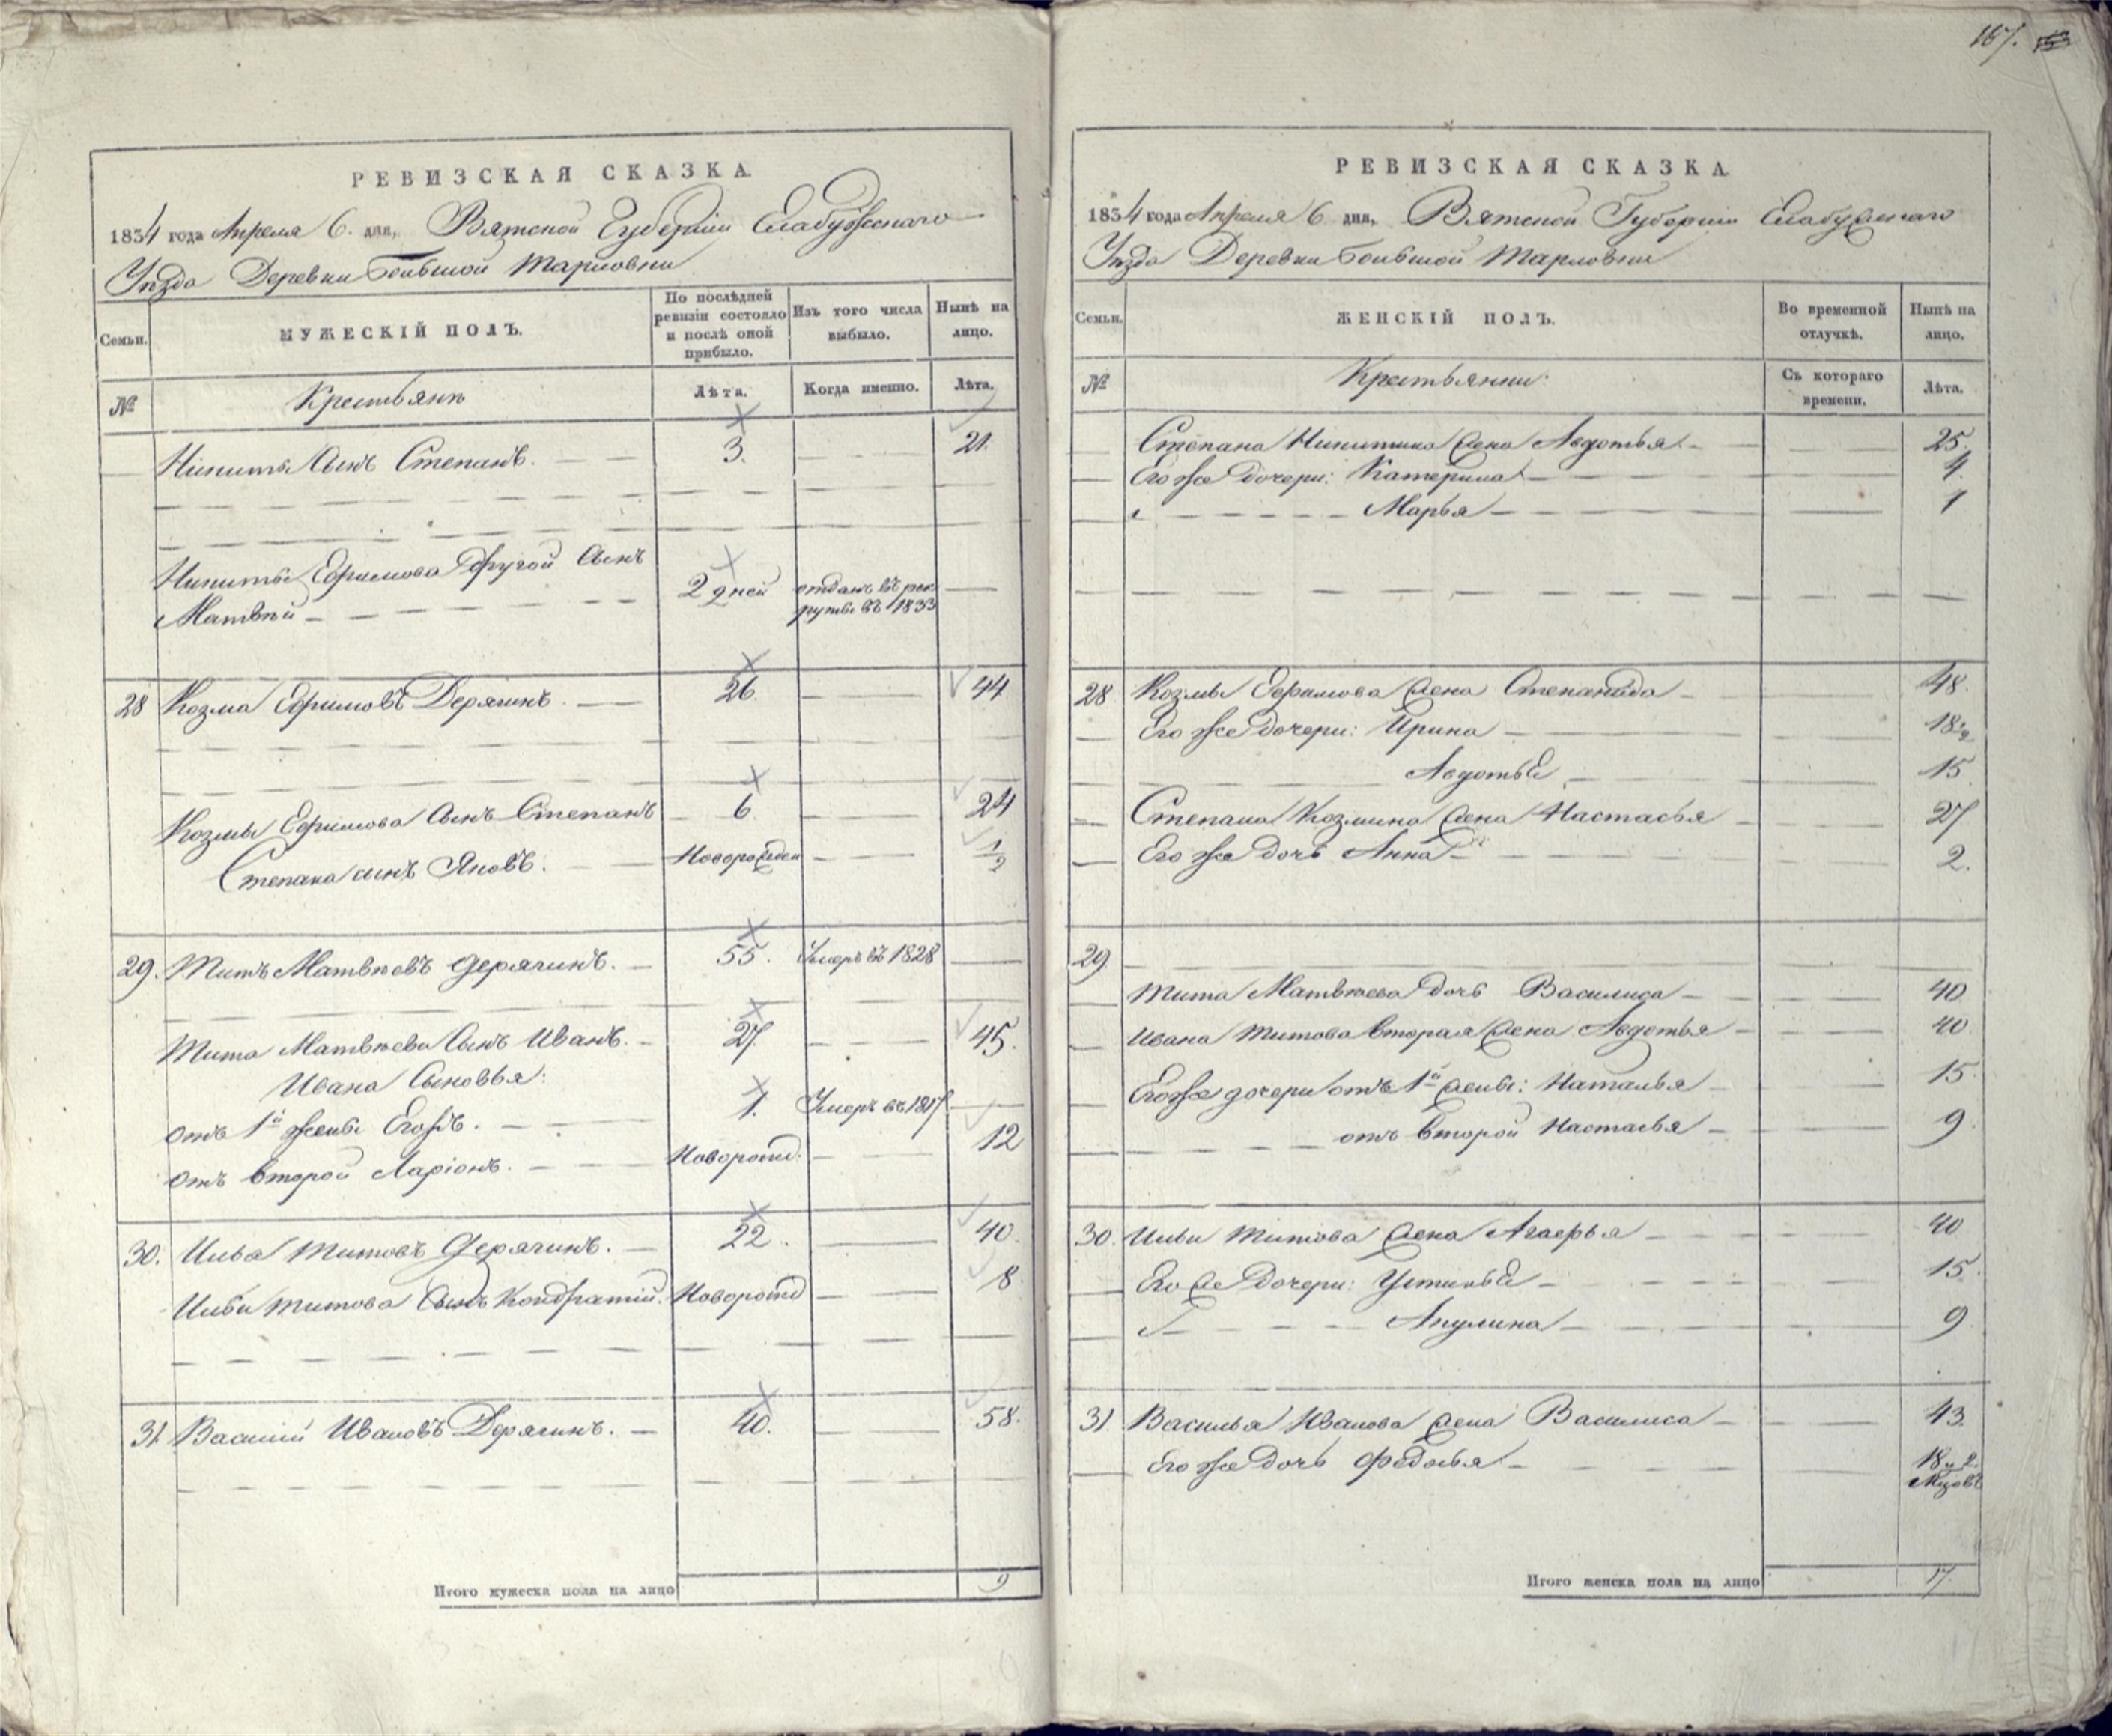 167.
РЕВИЗСКАЯ СКАЗКА.
1834 года Апреля 6. дня, Вятской Губернии Елабужскаго
Уѣзда Деревни Большой Тарловки
Семьи.
МУЖЕСКІЙ ПОЛЪ.
По послѣдней ревизіи состояло и послѣ оной прибыло.
Изъ того числа выбыло.
Нынѣ на лицо.
№
Крестьянѣ
Лѣта.
Когда именно.
Лѣта.
Никиты Сынъ Степанъ. 3. 21.
Никиты Ефимова другой Сынъ
Матвѣй 2 дней отданъ въ рек
руты въ 1833
28 Козма Ефимовъ Дерягинъ. 26. 44
Козмы Ефимова Сынъ Степанъ 6. 24
Степана сынъ Яковъ. Новорожден 1/2
29. Титъ Матвѣевъ Дерягинъ. 55. Умеръ въ 1828
Тита Матвѣева Сынъ Иванъ. 27. 45.
Ивана Сыновья:
отъ 1й жены Егоръ. 1. Умеръ въ 1817
отъ второй Ларіонъ. Новорожд. 12
30. Илья Титовъ Дерягинъ. 22. 40.
Ильи Титова Сынъ Кондратій. Новорожд 8.
31. Василій Ивановъ Дерягинъ. 40. 58.
Итого мужеска пола на лицо 9
РЕВИЗСКАЯ СКАЗКА.
1834 года Апреля 6 дня, Вятской Губернии Елабужскаго
Уѣзда Деревни Большой Тарловки
Семьи.
ЖЕНСКІЙ ПОЛЪ.
Во временной отлучкѣ.
Нынѣ на лицо.
№
Крестьянки:
Съ котораго времени.
Лѣта.
Степана Никитина Жена Авдотья 25.
Его же дочери: Катерина 4.
Марья 1
28 Козмы Ефимова Жена Степанида 48.
Его же дочери: Ирина 18
Авдотья 15
Степана Козмина Жена Настасья 27
Его же дочь Анна 2.
29.
Тита Матвѣева дочь Василиса 40
Ивана Титова вторая Жена Авдотья 40
Его же дочери отъ 1й жены: Наталья 15
отъ второй Настасья 9
30. Ильи Титова Жена Агафья 40
Его же дочери: Устинья 15.
Акулина 9
31. Василья Иванова Жена Василиса 43
Его же дочь Федосья 18 и 2.
Мцовъ
Итого женска пола на лицо 17.